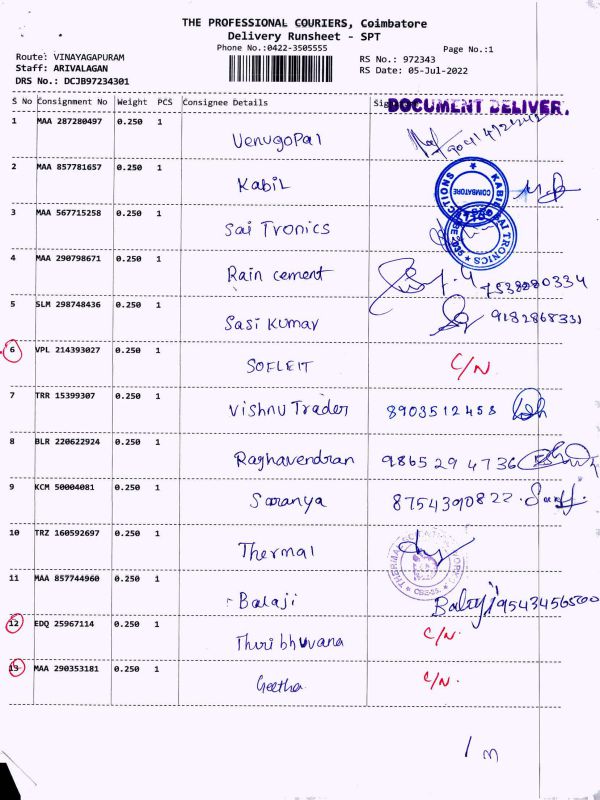 THE PROFESSIONAL COURIERS, Coimbatore
Delivery Runsheet - SPT
Phone No.:0422-3505555
Page No.:1
Route: VINAYAGAPURAM
RS No.: 972343
Staff: ARIVALAGAN
RS Date: 05-Jul-2022
DRS No.: DCJB97234301
S No Consignment No Weight PCS Consignee Details
DOCUMENT DELIVER.
1 MAA 287280497 0.250 1 Venugopal
2 MAA 857781657 0.250 1 Kabil
COIMBATORE
3 MAA 567715258 0.250 1 Sai Tronics
SAI TRONICS
4 MAA 290798671 0.250 1 Rain cement 7538080334
5 SLM 298748436 0.250 1 Sasi Kumar 9182868331
6 VPL 214393027 0.250 1 SOFLEIT C/N
7 TRR 15399307 0.250 1 Vishnu Trader 8903512458
8 BLR 220622924 0.250 1 Raghavendran 9865294736
9 KCM 50004081 0.250 1 Saranya 8754390822.
10 TRZ 160592697 0.250 1 Thermal
11 MAA 857744960 0.250 1 Balaji Balaji
12 EDQ 25967114 0.250 1 Thiribhuvana C/N.
13 MAA 290353181 0.250 1 Geetha C/N.